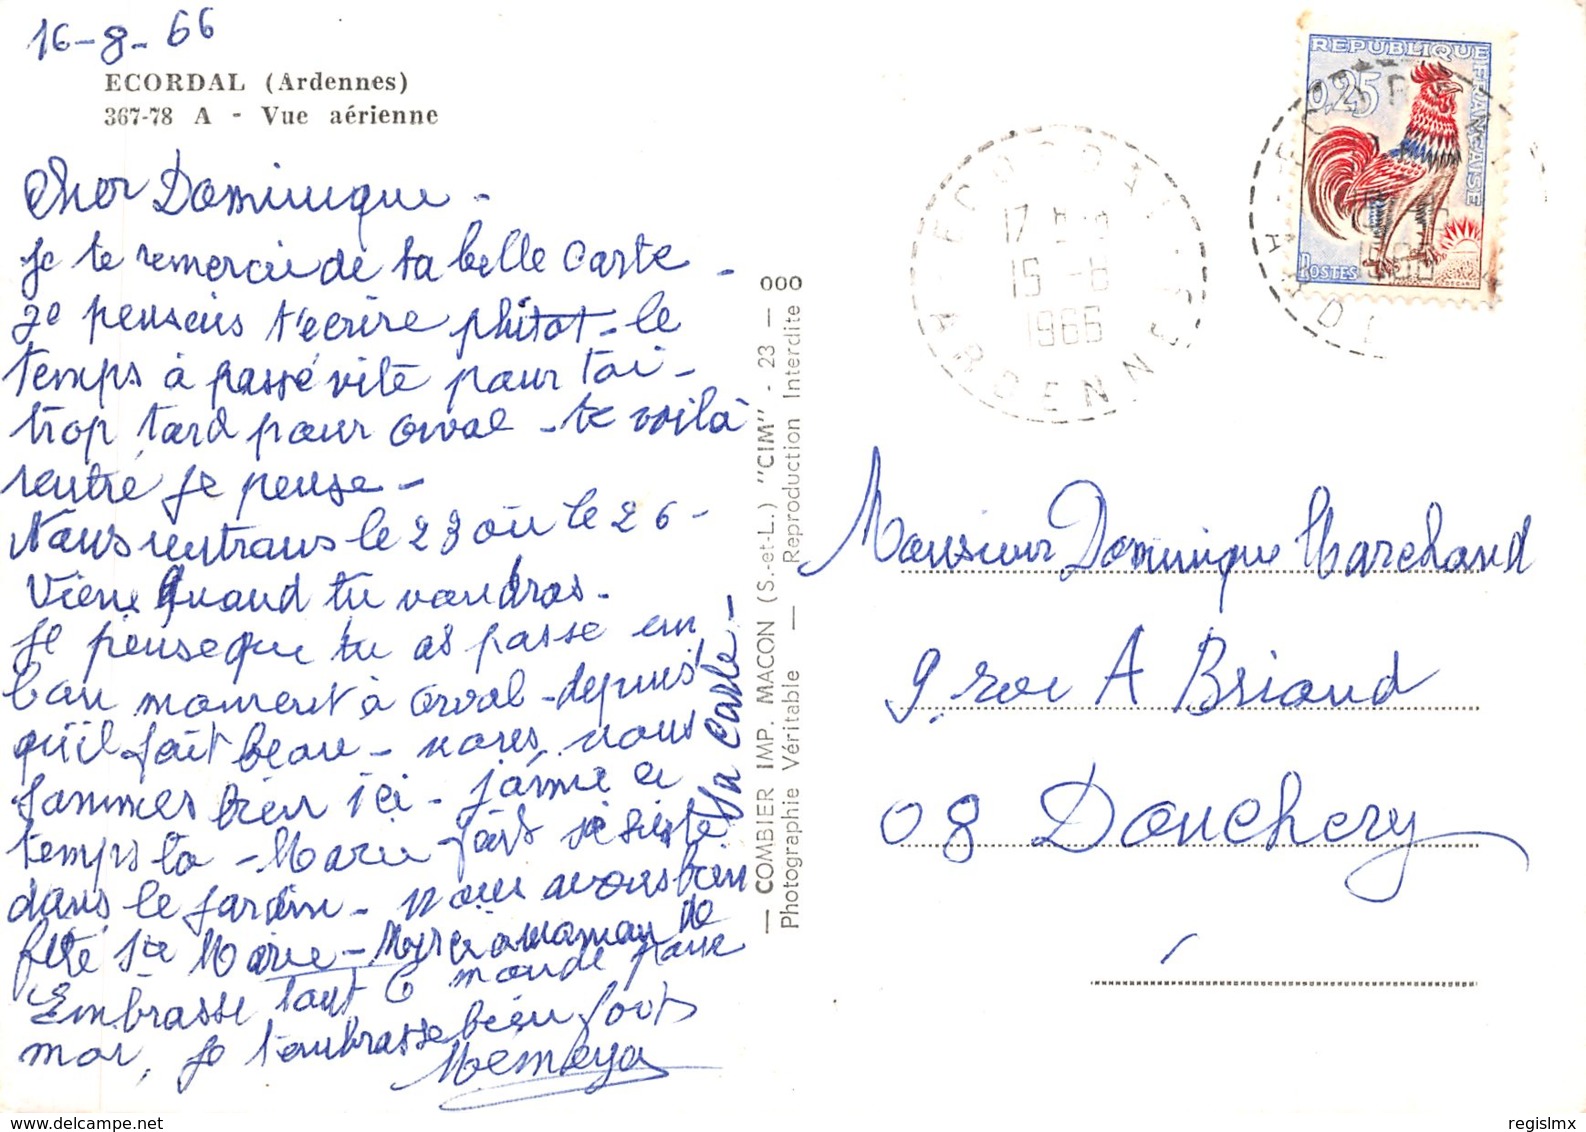 16-8-66
ECORDAL (Ardennes)
367-78 A - Vue aérienne
Cher Dominique -
Je te remercie de ta belle carte -
Je pensais t'ecrire plutot - le
temps à passé vite pour toi -
trop tard pour orval - te voilà
rentré je pense -
Nous rentrons le 23 ou le 26 -
Viens quand tu voudras -
Je pense que tu as passe un
bon moment à orval - depuis
qu'il fait beau - nous
sommes bien ici - j'aime ce
temps la - Marie fait sa sieste
dans le jardin - nous avons bien
fété Ste Marie - Merci a maman de
sa carte -
Embrasse tout le monde pour
moi, je t'embrasse bien fort
Memeye
— COMBIER IMP. MACON (S.-et-L.) "CIM" - 23 — 000
Photographie Véritable — Reproduction Interdite
ECORDAL
17 H
15 -8
1966
ARDENNES
REPUBLIQUE FRANÇAISE
0,25
POSTES
DECARIS
Monsieur Dominique Marchand
9 rue A Briand
08 Donchery
regislmx